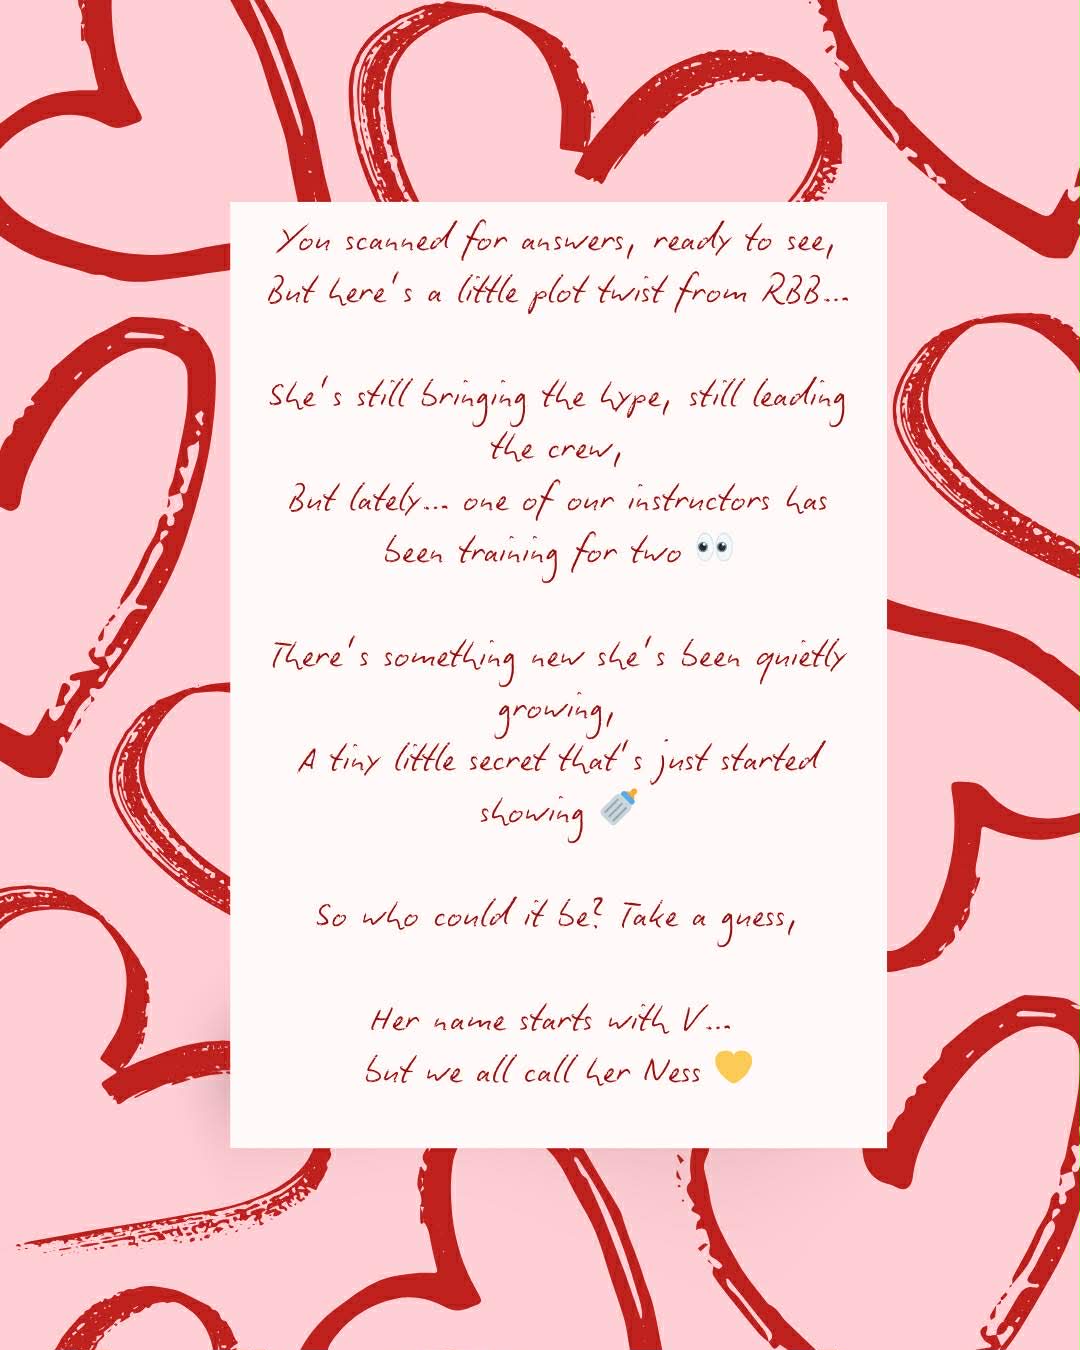 You scanned for answers, ready to see,
But here's a little plot twist from RBB...
She's still bringing the hype, still leading
the crew,
But lately... one of our instructors has
been training for two 👀
There's something new she's been quietly
growing,
A tiny little secret that's just started
showing 🍼
So who could it be? Take a guess,
Her name starts with V...
but we all call her Ness 💛